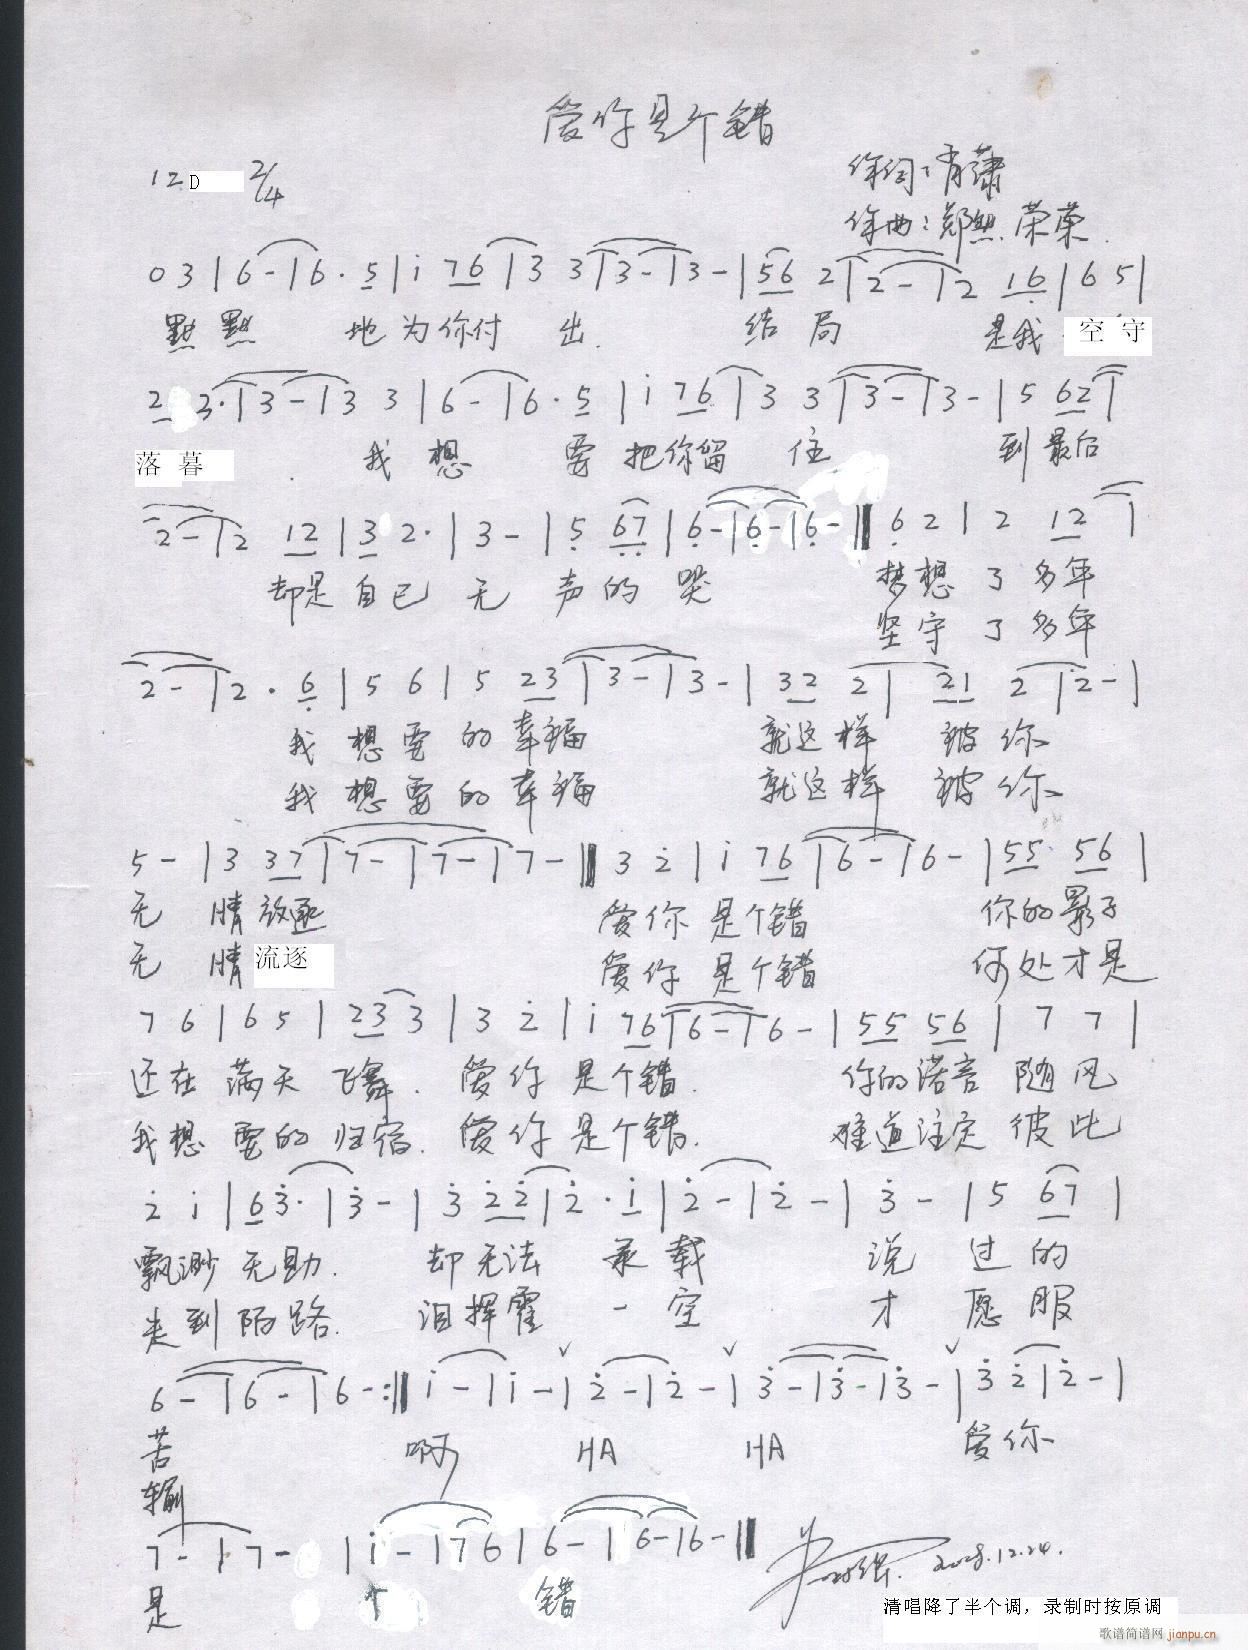 爱你是个错
1=D 2/4
作词：肖潇
作曲：郑 荣荣
0 3 | 6 - | 6 · 5 | i 7 6 | 3 3 | 3 - | 3 - | 5 6 2 | 2 - | 2 1 6 | 6 5 |
默默 地为你付出 结局 是我 空守
2 3 · | 3 - | 3 3 | 6 - | 6 · 5 | i 7 6 | 3 3 | 3 - | 3 - | 5 6 2 |
落暮 我想 要把你留住 到最后
2 - | 2 1 2 | 3 2 · | 3 - | 5 6 7 | 6 - | 6 - | 6 - || 6 2 | 2 1 2 |
却是自己无声的哭 梦想了多年
坚守了多年
2 - | 2 · 6 | 5 6 | 5 2 3 | 3 - | 3 - | 3 2 2 | 2 1 2 | 2 - |
我想要的幸福 就这样被你
我想要的幸福 就这样被你
5 - | 3 3 7 | 7 - | 7 - | 7 - || 3 2 | i 7 6 | 6 - | 6 - | 5 5 5 6 |
无情放逐 爱你是个错 你的影子
无情流逐 爱你是个错 何处才是
7 6 | 6 5 | 2 3 3 | 3 2 | i 7 6 | 6 - | 6 - | 5 5 5 6 | 7 7 |
还在满天飞舞 爱你是个错 你的诺言随风
我想要的归宿 爱你是个错 难道注定彼此
2 i | 6 3 · | 3 - | 3 2 2 | 2 · i | 2 - | 2 - | 3 - | 5 6 7 |
飘渺无助 却无法承载 说过的
走到陌路 泪挥霍一空 才愿服
6 - | 6 - | 6 - :|| i - | i - | 2 - | 2 - | 3 - | 3 - | 3 - | 3 2 | 2 - |
苦 啊 HA HA 爱你
输
7 - | 7 - | i - | 7 6 | 6 - | 6 - | 6 - ||
是 个 错
2008.12.24.
清唱降了半个调，录制时按原调
歌谱简谱网 jianpu.cn